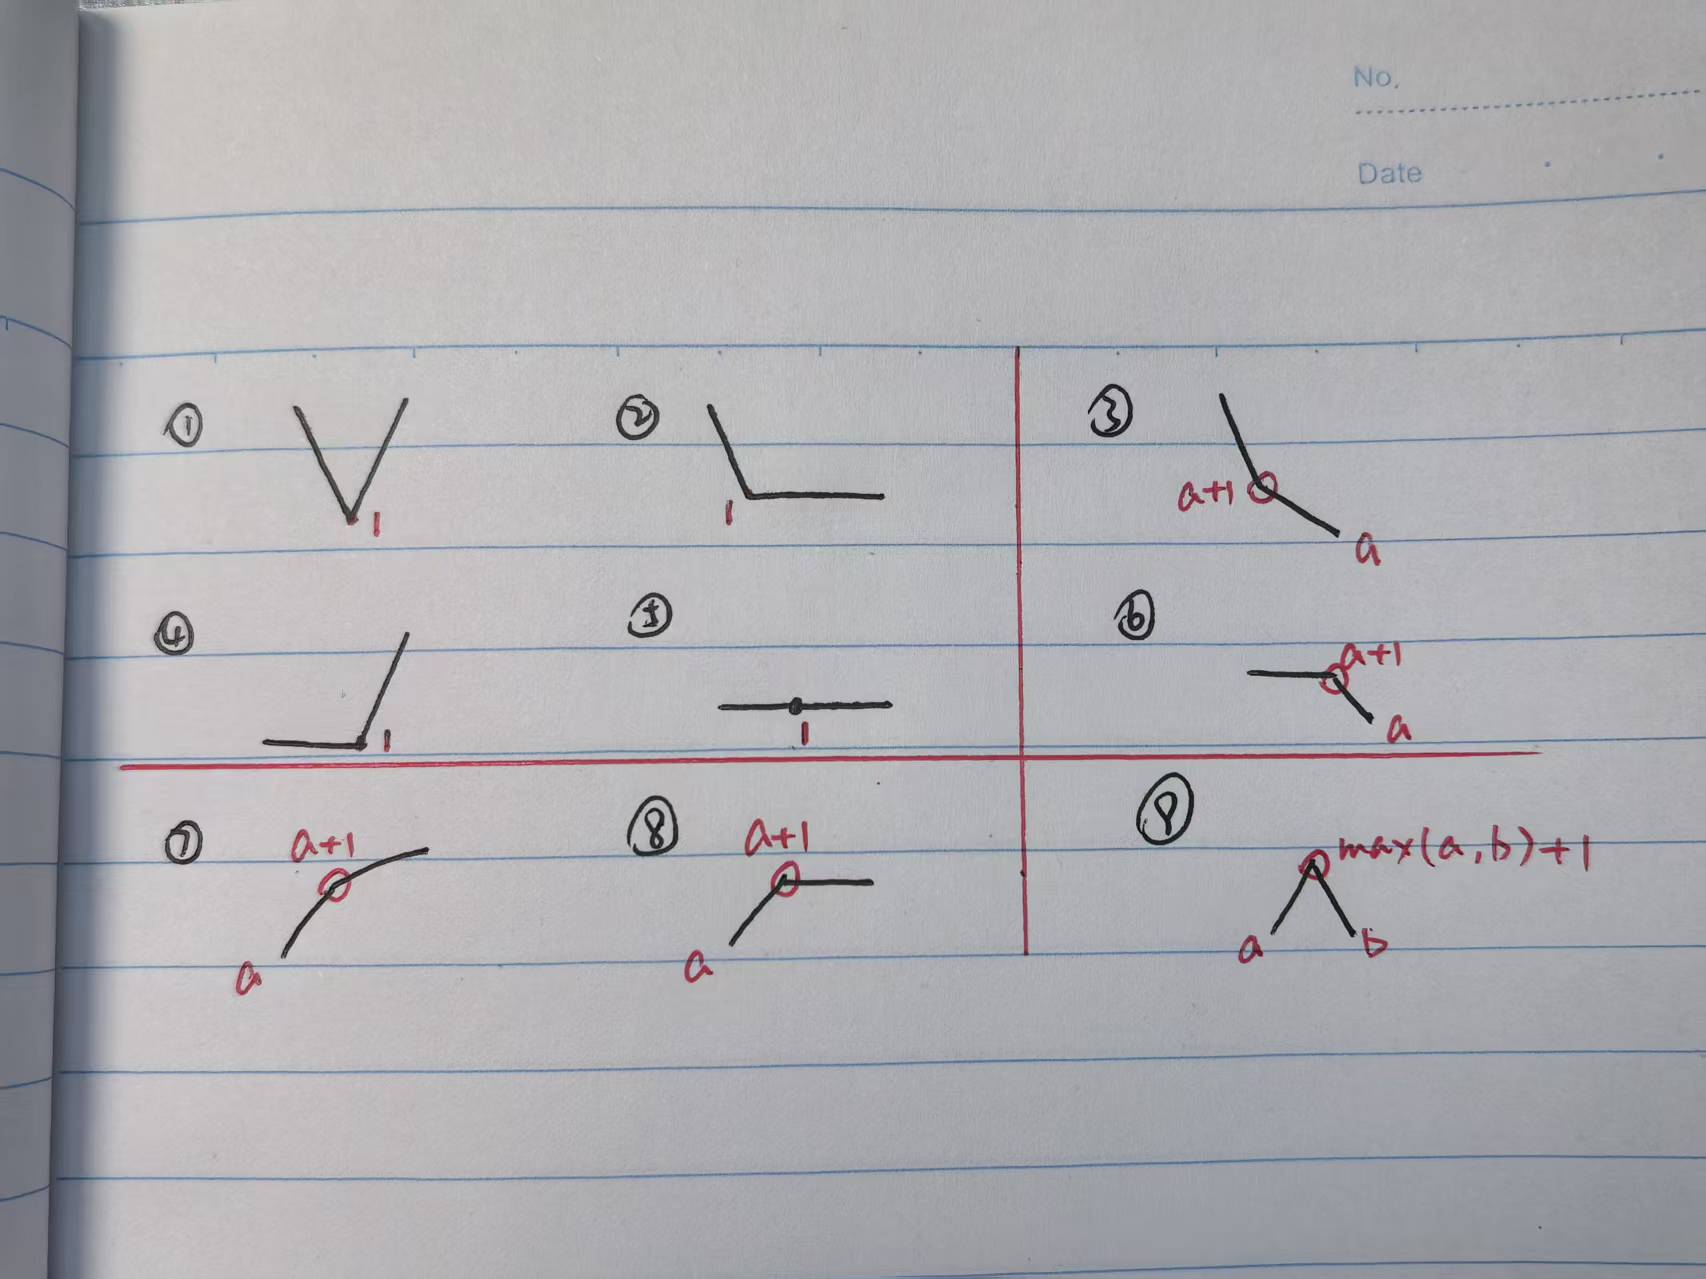 No.
Date
① ② ③
1 1 a+1 a
④ ⑤ ⑥
1 1 a+1 a
⑦ a+1 ⑧ a+1 ⑨ max(a,b)+1
a a a b